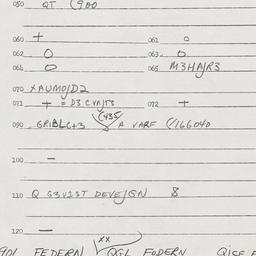 050 QT (900
060 + 061 0
062 0 063 0
064 0 065 M3HAJR3
070 XAUMO/D2
071 + = D3 CVAJT3 072 +
(435
090 GRIBLC+3 A VARF (/166040
100 -
110 Q G3V13T DEVE/GN 8
120 -
XX
FEDERN QGL FODERN